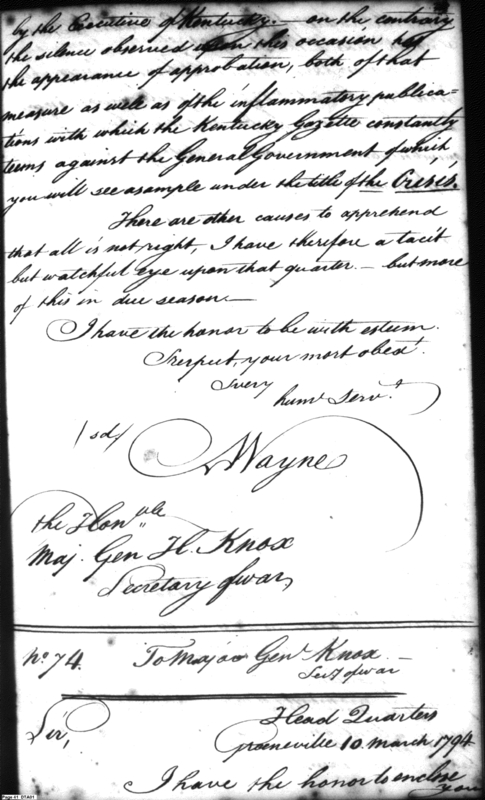 by the Executive of Kentucky. — on the contrary
the silence observed upon this occasion has
the appearance of approbation, both of that
measure as well as of the inflammatory publica=
tions with which the Kentucky Gazette constantly
teems against the General Government of which
you will see a sample under the title of the Crisis.
There are other causes to apprehend
that all is not right, I have therefore a tacit
but watchful eye upon that quarter. — but more
of this in due season —
I have the honor to be with esteem
& respect, your most obedt.
& very
huml. Servt.
/sd/
A Wayne
the Honble
Maj. Gen H. Knox
Secretary of war,
No. 74. To Major Genl. Knox —
Secy of war
Head Quarters
Sir, Greeneville 10. March 1794
I have the honor to enclose
you
Page 81 D1A01